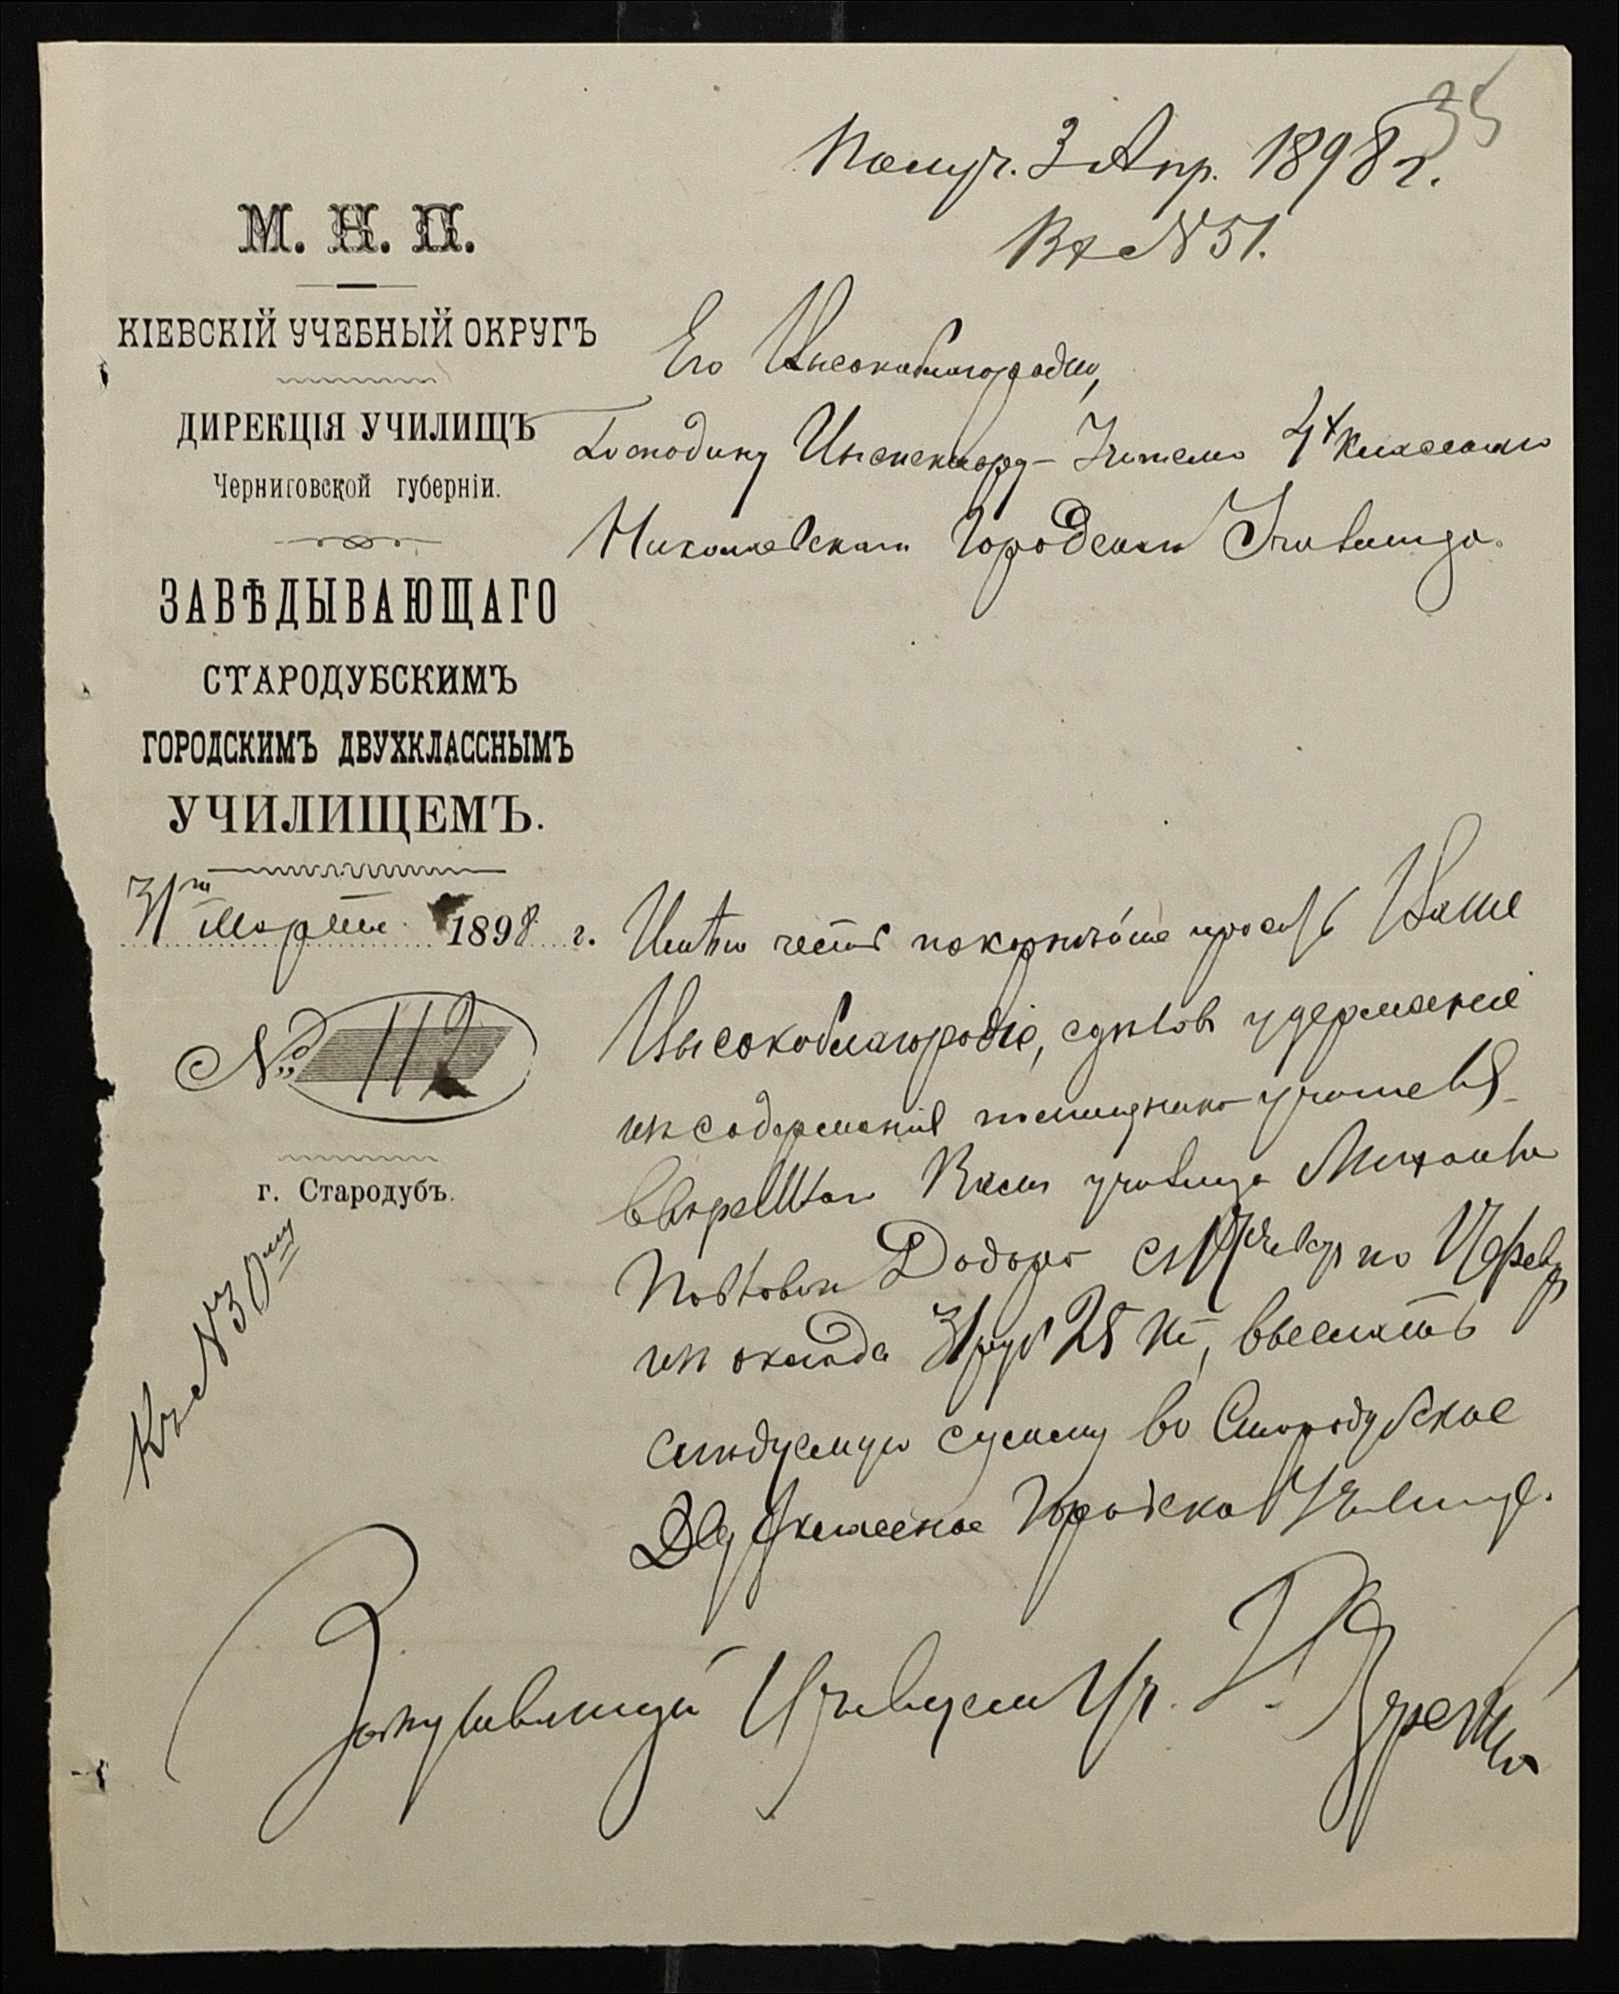 35
Получ. 3 Апр. 1898 г.
Вх № 51.
М. Н. П.
КІЕВСКІЙ УЧЕБНЫЙ ОКРУГЪ
ДИРЕКЦІЯ УЧИЛИЩЪ
Черниговской губерніи.
ЗАВѢДЫВАЮЩАГО
СТАРОДУБСКИМЪ
ГОРОДСКИМЪ ДВУХКЛАССНЫМЪ
УЧИЛИЩЕМЪ.
31го Марта 1898 г.
№ 112
г. Стародубъ.
Къ № 30му
Его Высокоблагородію,
Господину Инспектору-Учителю 4х классного
Николаевскаго Городского Училища.
Имѣю честь покорнѣйше просить Ваше
Высокоблагородіе, сдѣлавъ удержаніе
изъ содержанія помощника учителя
ввѣреннаго Вамъ училища Михаила
по
изъ оклада 31 руб 25 к, выслать
слѣдуемую сумму въ Стародубское
Двухклассное Городское Училище.
Завѣдывающій Училищемъ